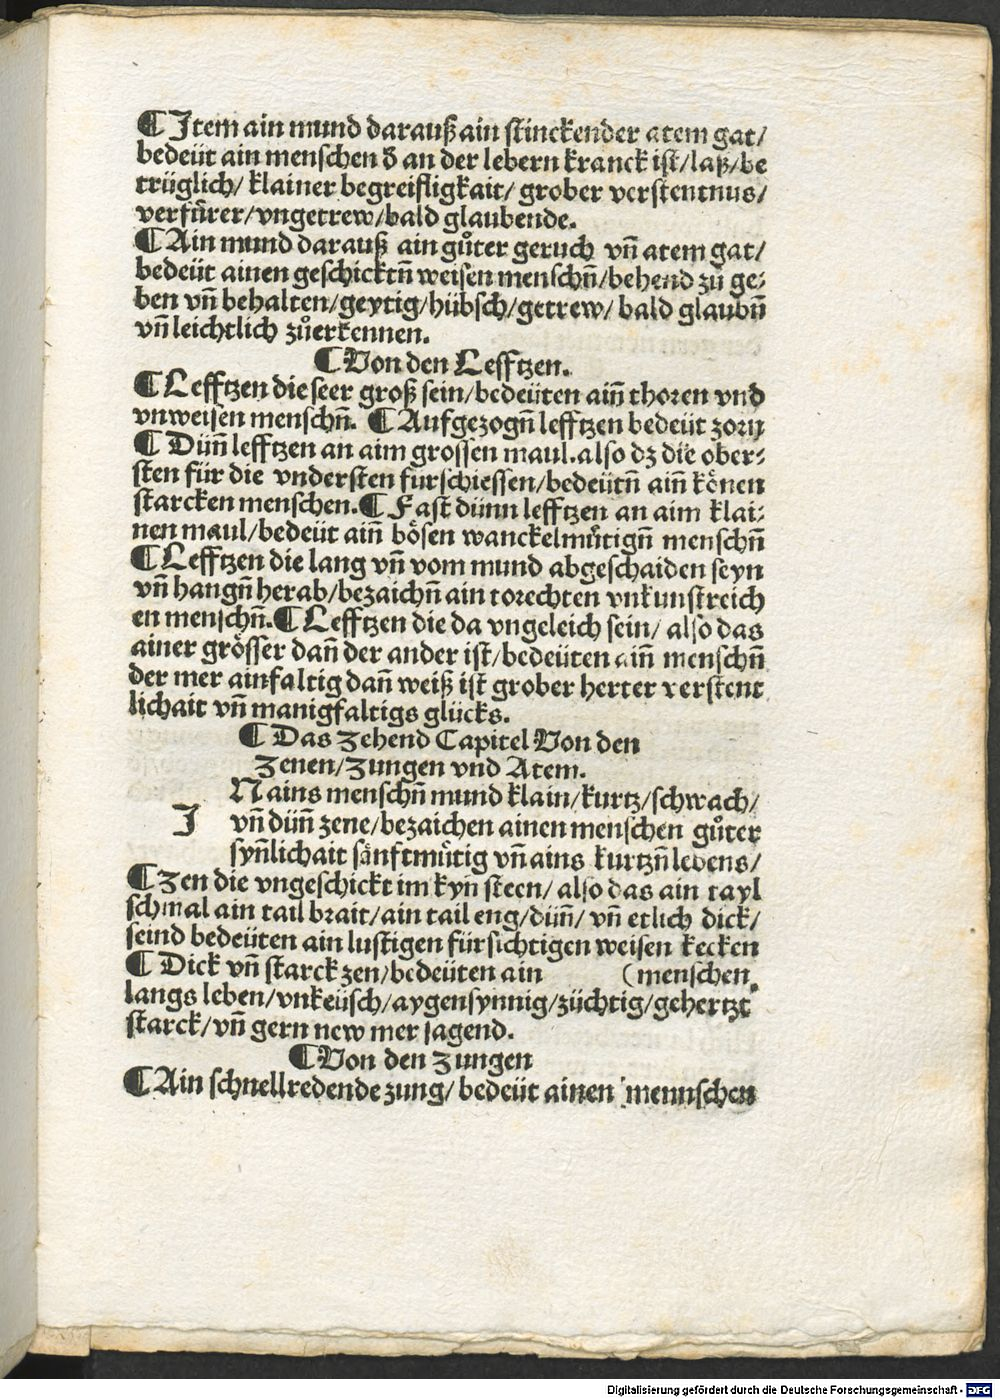 ¶ Item ain mund darauß ain stinckender atem gat/
bedeüt ain menschen d̕ an der lebern kranck ist/laß/be
trüglich/ klainer begreifligkait/ grober verstentnus/
verfürer/vngetrew/bald glaubende.
¶ Ain mund darauß ain gůter geruch vñ atem gat/
bedeüt ainen geschicktñ weisen menschñ/behend zů ge⸗
ben vñ behalten/geytig/hübsch/getrew/ bald glaubñ
vñ leichtlich zůerkennen.
¶ Von den Lefftzen.
¶ Lefftzen die seer groß sein/bedeüten aiñ thoren vnd
vnweisen menschñ. ¶ Aufgezogñ lefftzen bedeüt zorn
¶ Düñ lefftzen an aim grossen maul.also dz die ober⸗
sten für die vndersten fürschiessen/bedeütñ aiñ könen
starcken menschen.¶ Fast dünn lefftzen an aim klai⸗
nen maul/bedeüt aiñ bösen wanckelmůtigñ menschñ
¶ Lefftzen die lang vñ vom mund abgeschaiden seyn
vñ hangñ herab/bezaichñ ain torechten vnkunstreich
en menschñ.¶ Lefftzen die da vngeleich sein/ also das
ainer grösser dañ der ander ist/bedeüten aiñ menschñ
der mer ainfaltig dañ weiß ist grober herter verstent
lichait vñ manigfaltigs glücks.
¶ Das zehend Capitel Von den
zenen/zungen vnd Atem.
Nains menschñ mund klain/kurtz/schwach/
I vñ düñ zene/bezaichen ainen menschen gůter
syñlichait sänftmůtig vñ ains kurtzñ lebens/
¶ Zen die vngeschickt im kyñ steen/ also das ain tayl
schmal ain tail brait/ain tail eng/düñ/ vñ etlich dick/
seind bedeüten ain lustigen fürsichtigen weisen kecken
¶ Dick vñ starck zen/bedeüten ain (menschen.
langs leben/vnkeüsch/aygensynnig/züchtig/gehertzt
starck/vñ gern new mer sagend.
¶ Von den zungen
¶ Ain schnellredende zung/ bedeüt ainen mennschen
Digitalisierung gefördert durch die Deutsche Forschungsgemeinschaft - DFG